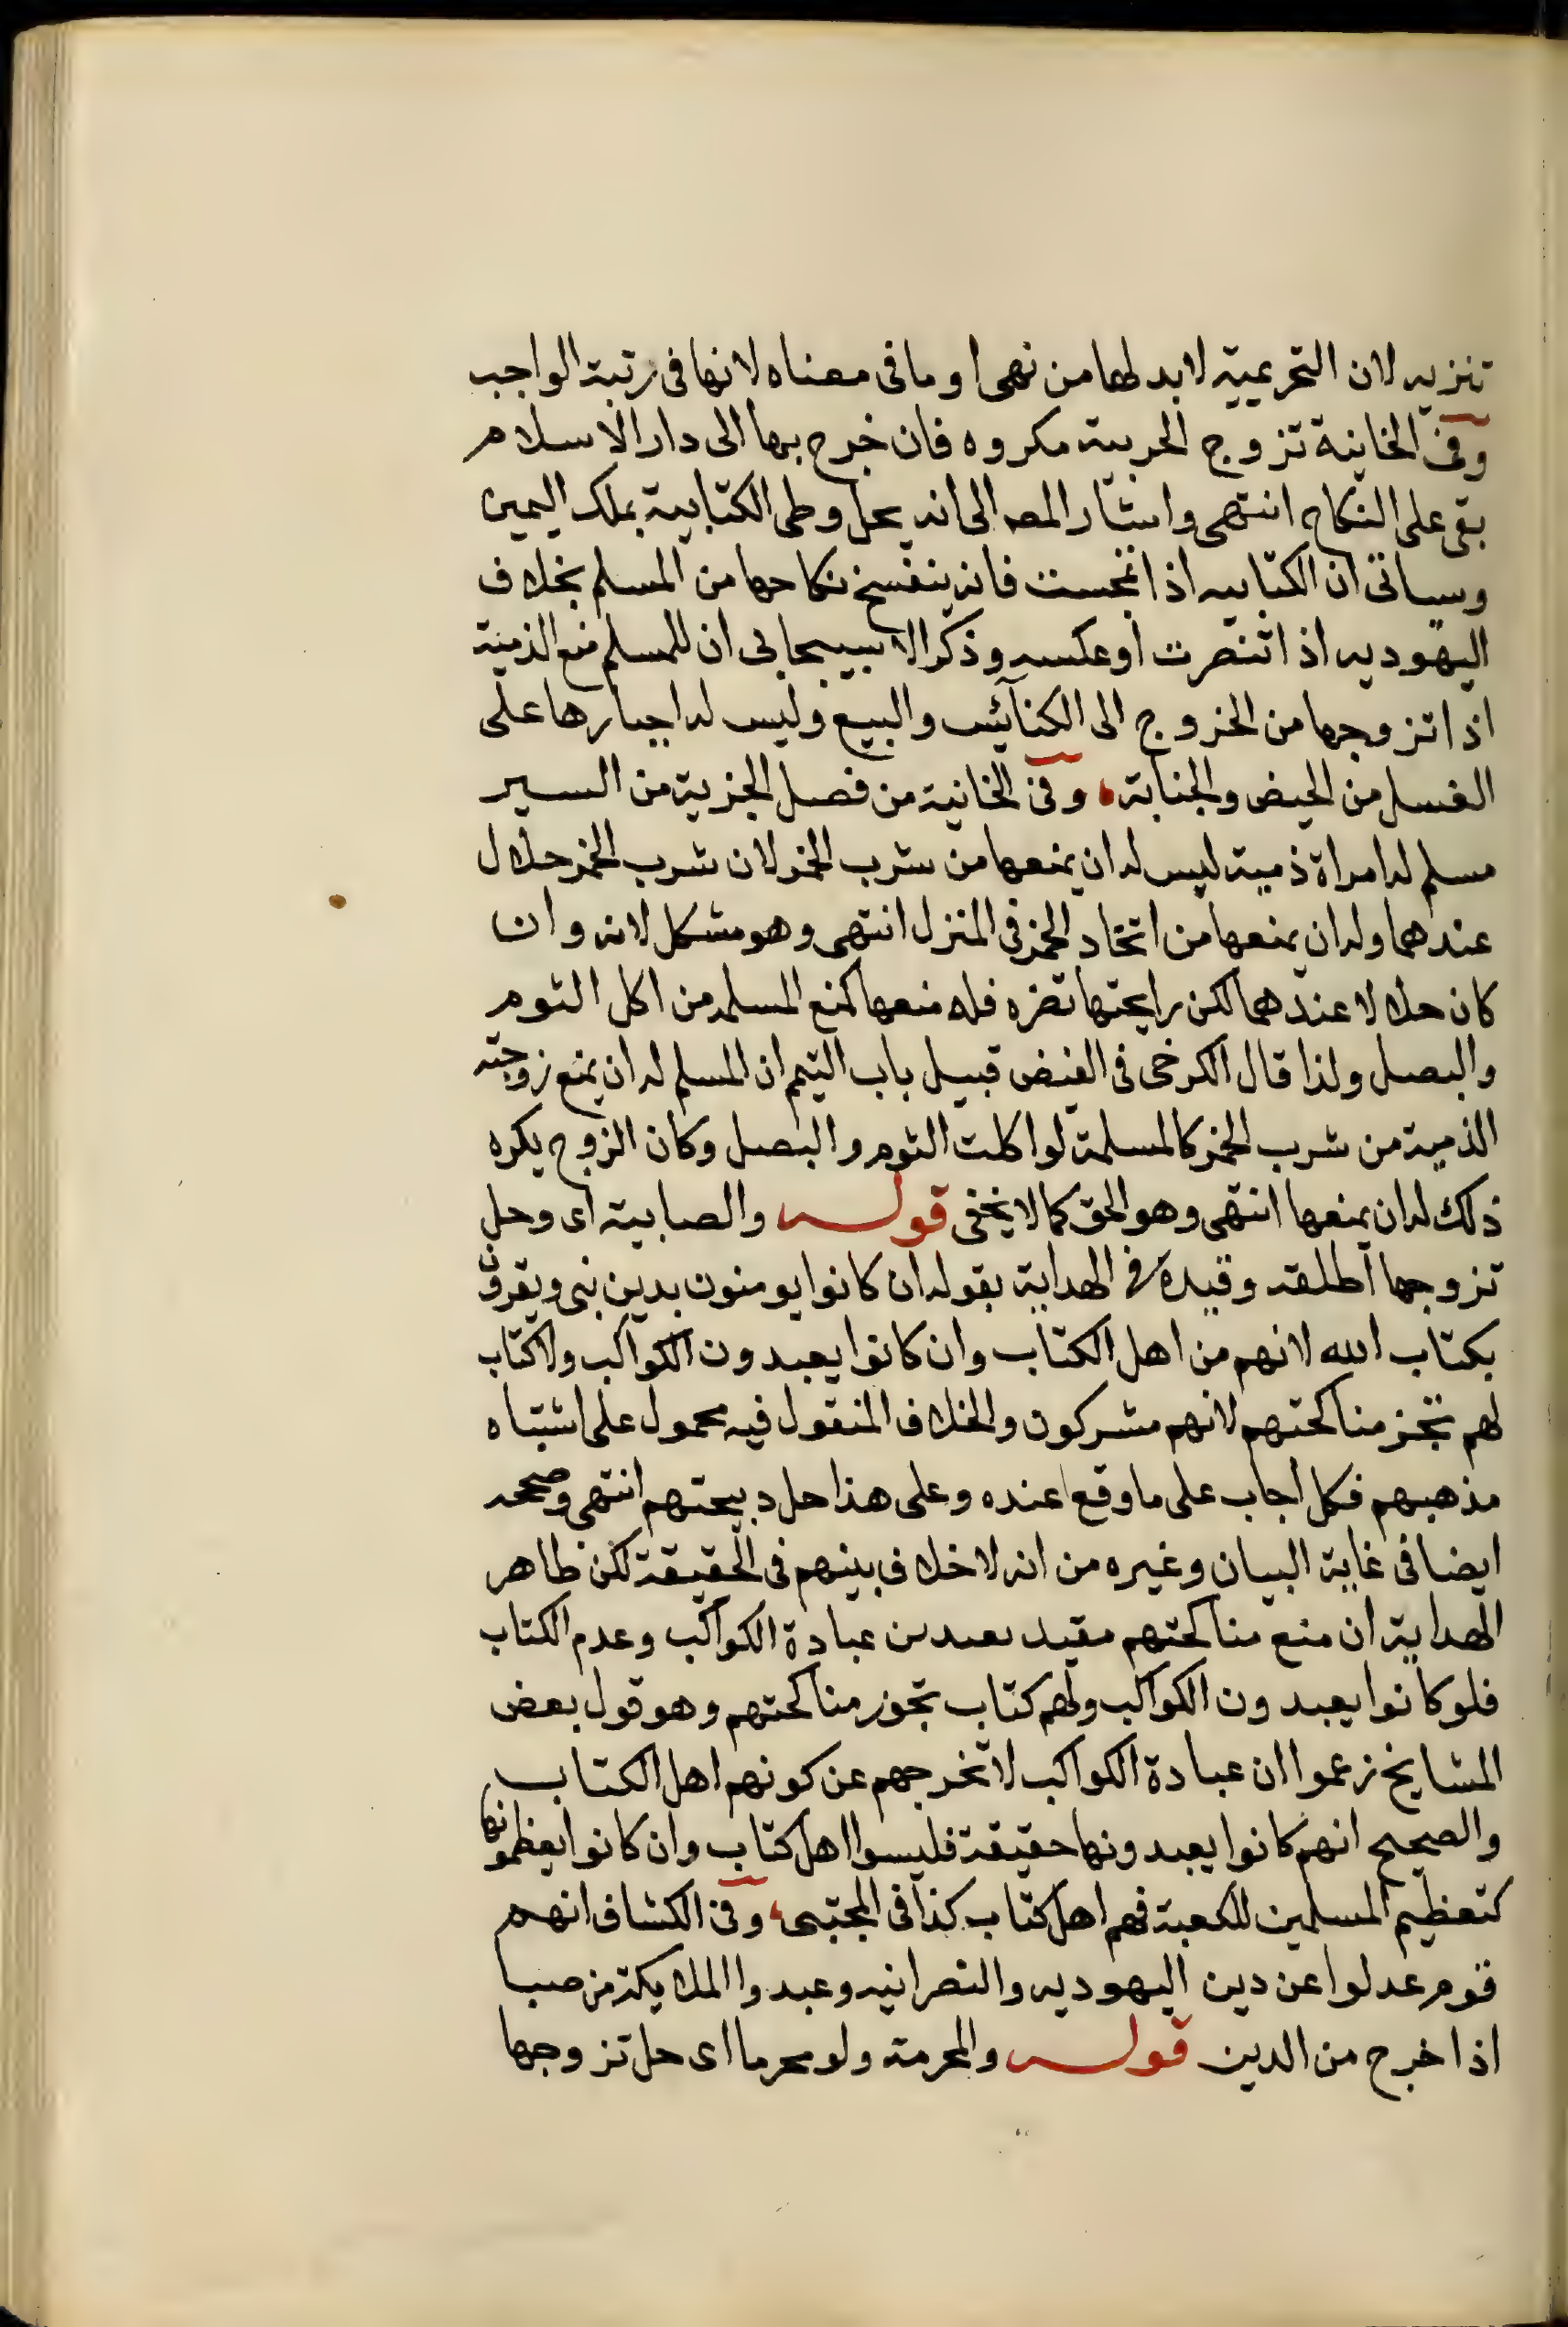 تنزيه لان التحريمية لابد لها من نهى او ما فى معناه لانها فى رتبة الواجب
وفى الخانية تزوج الحربية مكروه فان خرج بها الى دار الاسلام
بقى على النكاح انتهى واشار المصـ الى انه يحل وطى الكتابية بملك اليمين
وسياتى ان الكتابيه اذا تمجست فانه ينفسخ نكاحها من المسلم بخلاف
اليهوديه اذا تنصرت او عكسه وذكر الاسبيجابى ان للمسلم منع الذمية
اذا تزوجها من الخروج الى الكنآئس والبيع وليس له اجبارها على
الغسل من الحيض والجنابة، وفى الخانية من فصل الجزية من السير
مسلم له امراة ذمية ليس له ان يمنعها من شرب الخمر لان شرب الخمر حلال
عندهما وله ان يمنعها من اتخاد الخمر فى المنزل انتهى وهو مشكل لانه وان
كان حلالا عندهما لكن رايحتها تضره فله منعها كمنع المسلم من اكل الثوم
والبصل ولذا قال الكرخى فى الفيض قبيل باب التيمم ان المسلم له ان يمنع زوجته
الذمية من شرب الخمر كالمسلمة لو اكلت الثوم والبصل وكان الزوج يكره
ذلك له ان يمنعها انتهى وهو الحق كما لا يخفى قوله والصابية اى وحل
تزوجها اطلقه وقيده فى الهداية بقوله ان كانوا يومنون بدين نبى ويقرون
بكتاب الله لانهم من اهل الكتاب وان كانوا يعبدون الكواكب ولا كتاب
لهم تجز مناكحتهم لانهم مشركون والخلاف المنقول فيه محمول على اشتباه
مذهبهم فكل اجاب على ما وقع عنده وعلى هذا حل دبيحتهم انتهى وصححه
ايضا فى غاية البيان وغيره من انه لا خلاف بينهم فى الحقيقة لكن ظاهر
الهداية ان منع مناكحتهم مقيد بعيدين عبادة الكواكب وعدم الكتاب
فلو كانوا يعبدون الكواكب ولهم كتاب تجوز مناكحتهم وهو قول بعض
المشايخ زعموا ان عبادة الكواكب لا تخرجهم عن كونهم اهل الكتاب
والصحيح انهم كانوا يعبدونها حقيقة فليسوا اهل كتاب وان كانوا يعظمونها
كتعظيم المسلمين للكعبة فهم اهل كتاب كذا فى المجتبى، وفى الكشاف انهم
قوم عدلوا عن دين اليهوديه والنصرانيه وعبدوا الملايكة من صبا
اذا خرج من الدين قوله والمحرمة ولو محرما اى حل تزوجها